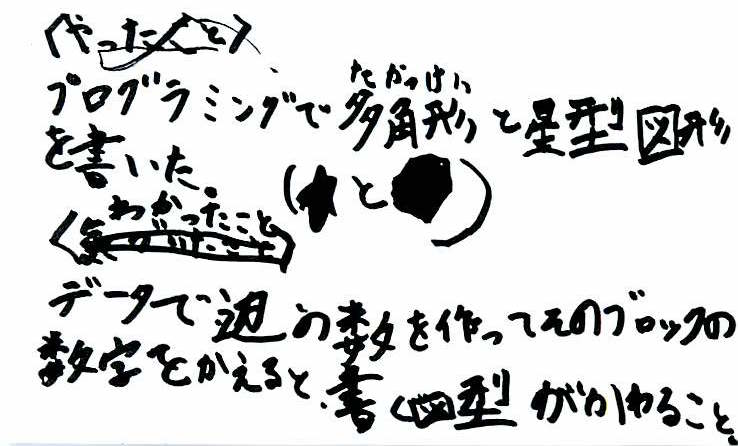 〈やったこと〉
プログラミングで多角形と星型図形
を書いた。
(★と●)
〈わかったこと〉
データで辺の数を作ってそのブロックの
数字をかえると、書く図型がかわること。